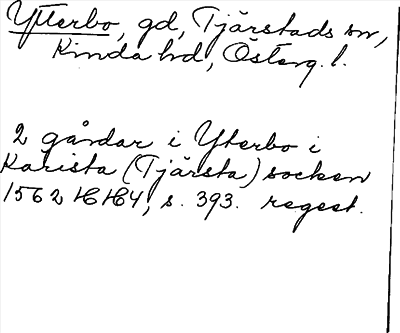 Ytterbo, gd, Tjärstads sn,
Kinda hd, Österg. l.
2 gårdar i Ytterbo i
Kärista (Tjärsta) socken
1562 HH4, s. 393. regest.